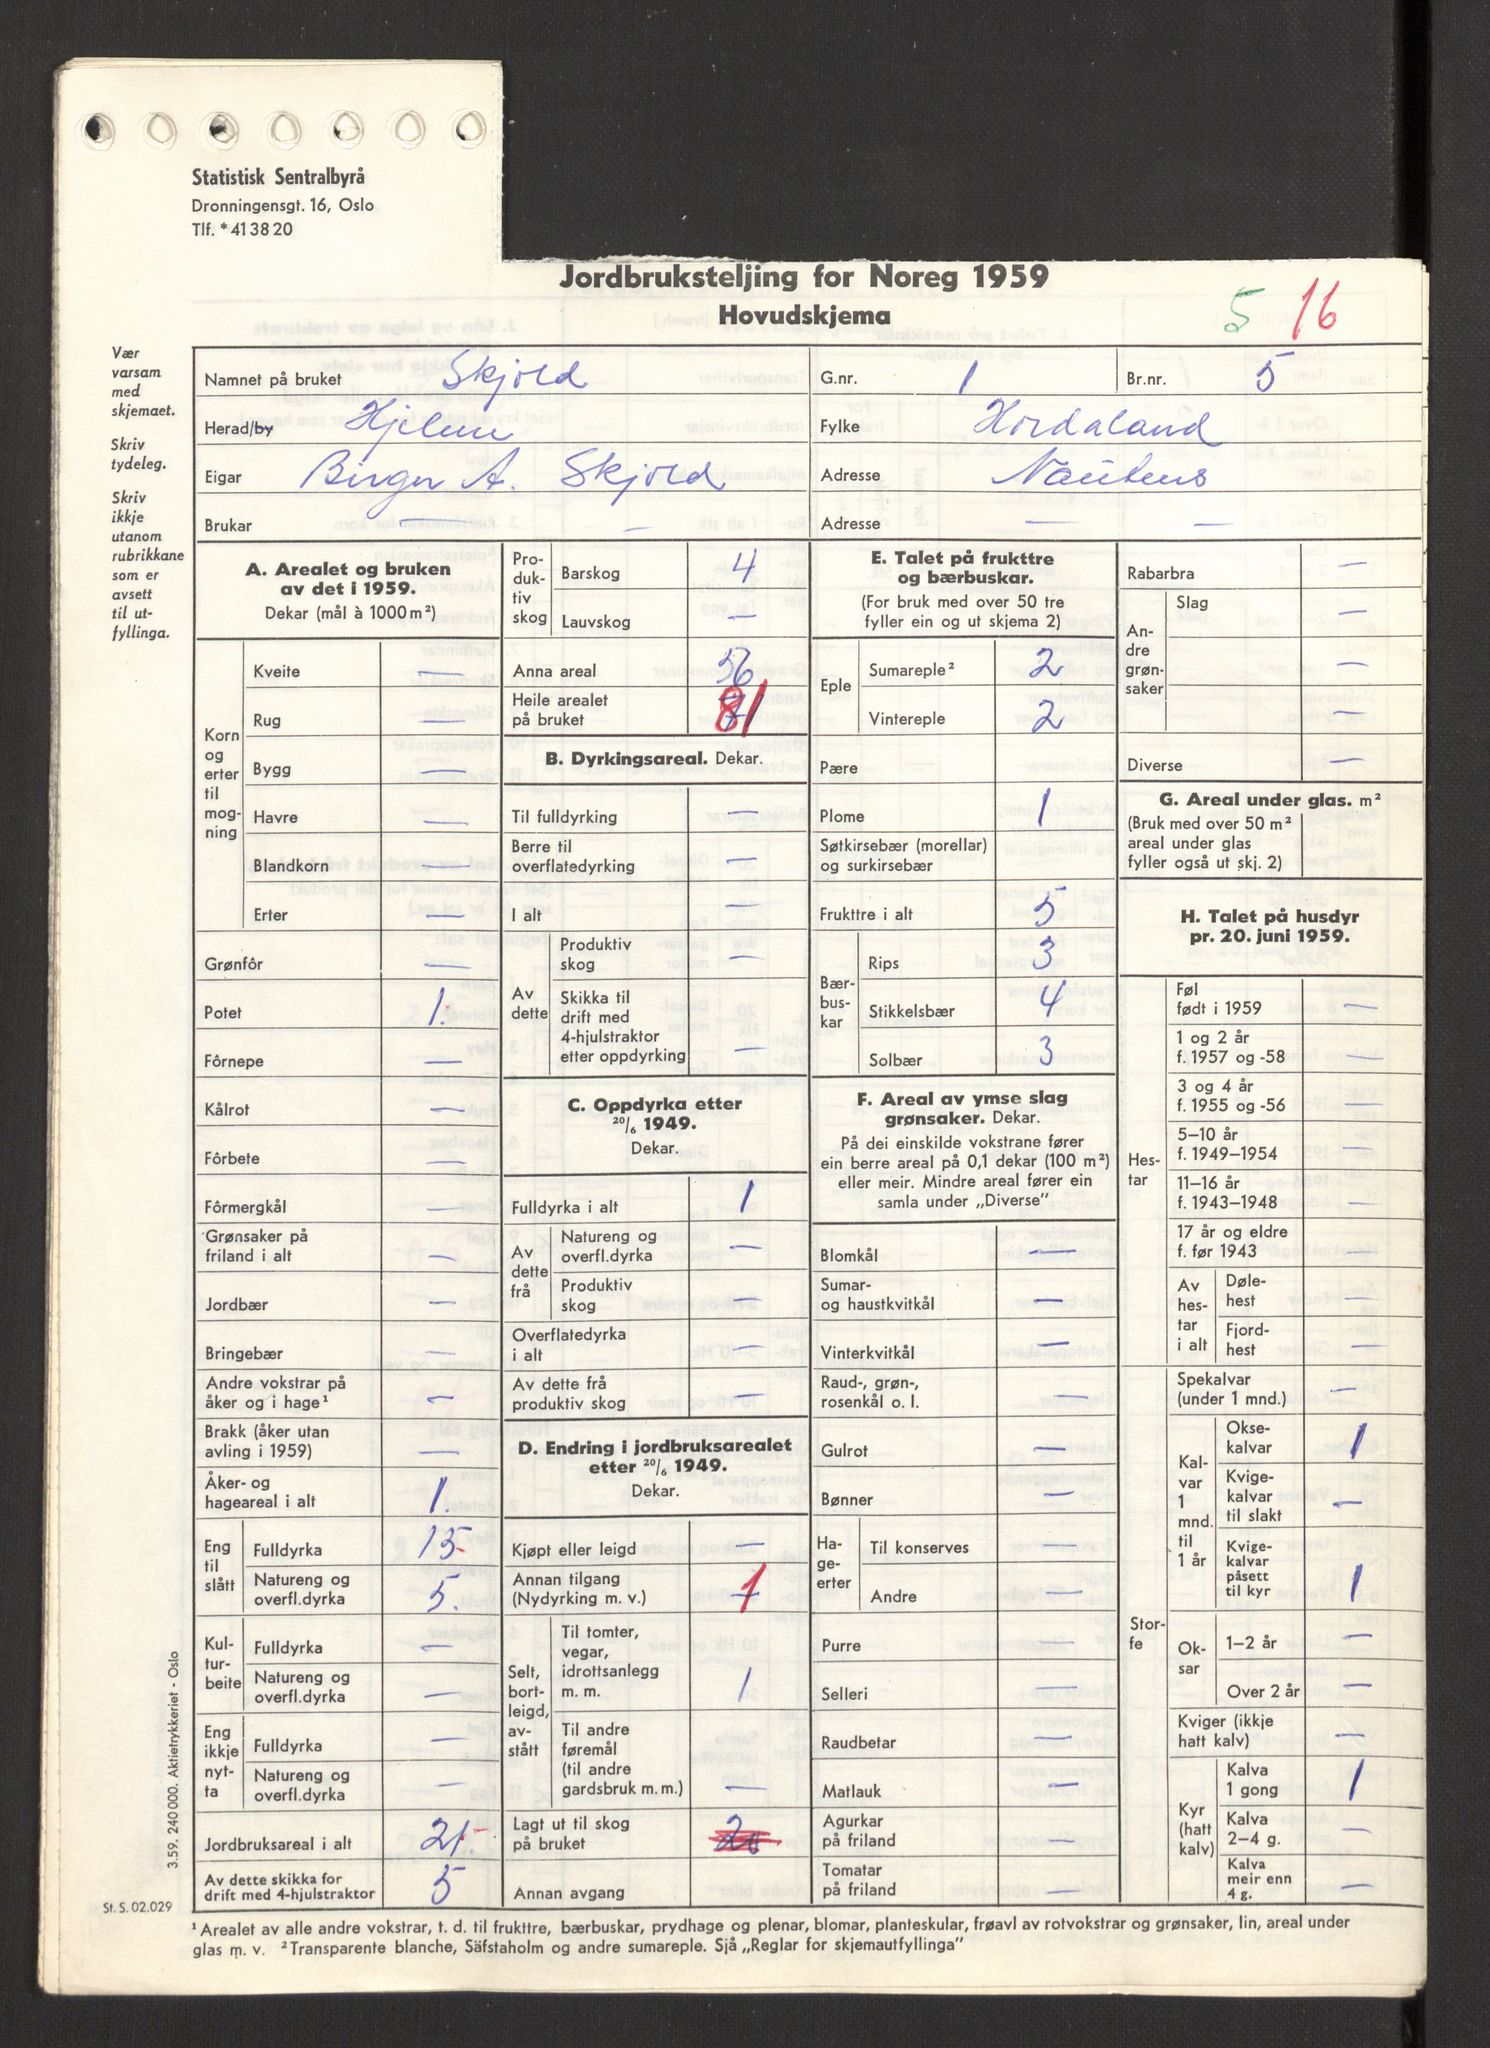 Statistisk Sentralbyrå
Dronningensgt. 16, Oslo
Tlf. *41 38 20
Jordbruksteljing for Noreg 1959
Hovudskjema
5 16
Vær
varsam
med
skjemaet.
Skriv
tydeleg.
Skriv
ikkje
utanom
rubrikkane
som er
avsett
til ut-
fyllinga.
Namnet på bruket Skjold G.nr. 1 Br.nr. 5
Herad/by Hjelme Fylke Hordaland
Eigar Birger A. Skjold Adresse
Brukar — — Adresse — —
A. Arealet og bruken
av det i 1959.
Dekar (mål à 1000 m²)
Korn
og
erter
til
mog-
ning
Kveite —
Rug —
Bygg —
Havre —
Blandkorn
Erter —
Grønfôr —
Potet 1.
Fôrnepe —
Kålrot —
Fôrbete —
Fôrmergkål —
Grønsaker på
friland i alt —
Jordbær —
Bringebær —
Andre vokstrar på
åker og i hage¹ —
Brakk (åker utan
avling i 1959) —
Åker- og
hageareal i alt 1.
Eng
til
slått
Fulldyrka 15
Natureng og
overfl.dyrka 5.
Kul-
tur-
beite
Fulldyrka —
Natureng og
overfl.dyrka —
Eng
ikkje
nyt-
ta
Fulldyrka —
Natureng og
overfl.dyrka —
Jordbruksareal i alt 21.
Av dette skikka for
drift med 4-hjulstraktor 5
Pro-
duk-
tiv
skog
Barskog 4
Lauvskog —
Anna areal 56
Heile arealet
på bruket 81
B. Dyrkingsareal. Dekar.
Til fulldyrking —
Berre til
overflatedyrking —
I alt —
Av
dette
Produktiv
skog —
Skikka til
drift med
4-hjulstraktor
etter oppdyrking —
C. Oppdyrka etter
20/6 1949.
Dekar.
Fulldyrka i alt 1
Av
dette
frå
Natureng og
overfl.dyrka —
Produktiv
skog —
Overflatedyrka
i alt —
Av dette frå
produktiv skog —
D. Endring i jordbruksarealet
etter 20/6 1949.
Dekar.
Kjøpt eller leigd —
Annan tilgang
(Nydyrking m. v.) 1
Selt,
bort-
leigd,
av-
stått
Til tomter,
vegar,
idrottsanlegg
m. m. 1
Til andre
føremål
(til andre
gardsbruk m. m.) —
Lagt ut til skog
på bruket
Annan avgang —
E. Talet på frukttre
og bærbuskar.
(For bruk med over 50 tre
fyller ein og ut skjema 2)
Eple
Sumareple² 2
Vintereple 2
Pære
Plome 1
Søtkirsebær (morellar)
og surkirsebær
Frukttre i alt 5
Bær-
bus-
kar
Rips 3
Stikkelsbær 4
Solbær 3
F. Areal av ymse slag
grønsaker. Dekar.
På dei einskilde vokstrane fører
ein berre areal på 0,1 dekar (100 m²)
eller meir. Mindre areal fører ein
samla under „Diverse”
Blomkål —
Sumar-
og haustkvitkål —
Vinterkvitkål —
Raud-, grøn-,
rosenkål o. l. —
Gulrot —
Bønner —
Ha-
ge-
erter
Til konserves —
Andre —
Purre —
Selleri —
Raudbetar —
Matlauk —
Agurkar
på friland —
Tomatar
på friland —
Rabarbra —
An-
dre
grøn-
saker
Slag —
—
—
Diverse —
G. Areal under glas. m²
(Bruk med over 50 m²
areal under glas
fyller også ut skj. 2)
H. Talet på husdyr
pr. 20. juni 1959.
Hes-
tar
Føl
født i 1959 —
1 og 2 år
f. 1957 og -58 —
3 og 4 år
f. 1955 og -56 —
5–10 år
f. 1949–1954 —
11–16 år
f. 1943–1948 —
17 år og eldre
f. før 1943 —
Av
hes-
tar
i alt
Døle-
hest —
Fjord-
hest —
Stor-
fe
Spekalvar
(under 1 mnd.) —
Kal-
var
1
mnd.
til
1 år
Okse-
kalvar 1
Kvige-
kalvar
til slakt —
Kvige-
kalvar
påsett
til kyr 1
Ok-
sar
1–2 år —
Over 2 år —
Kviger (ikkje
hatt kalv) —
Kyr
(hatt
kalv)
Kalva
1 gong 1
Kalva
2–4 g. —
Kalva
meir enn
4 g. —
3.59. 240 000. Aktietrykkeriet - Oslo
St. S. 02.029
¹ Arealet av alle andre vokstrar, t. d. til frukttre, bærbuskar, prydhage og plenar, blomar, planteskular, frøavl av rotvokstrar og grønsaker, lin, areal under
glas m. v. ² Transparente blanche, Säfstaholm og andre sumareple. Sjå „Reglar for skjemautfyllinga”